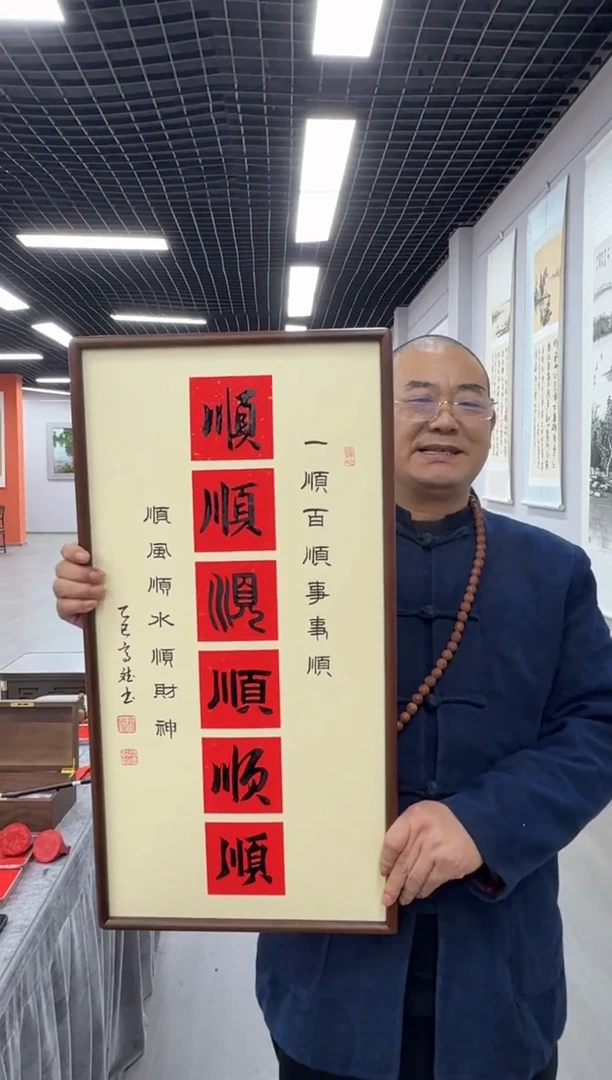 一順百順事事順
順
順
順
順
順
順
順風順水順財神
乙巳
書